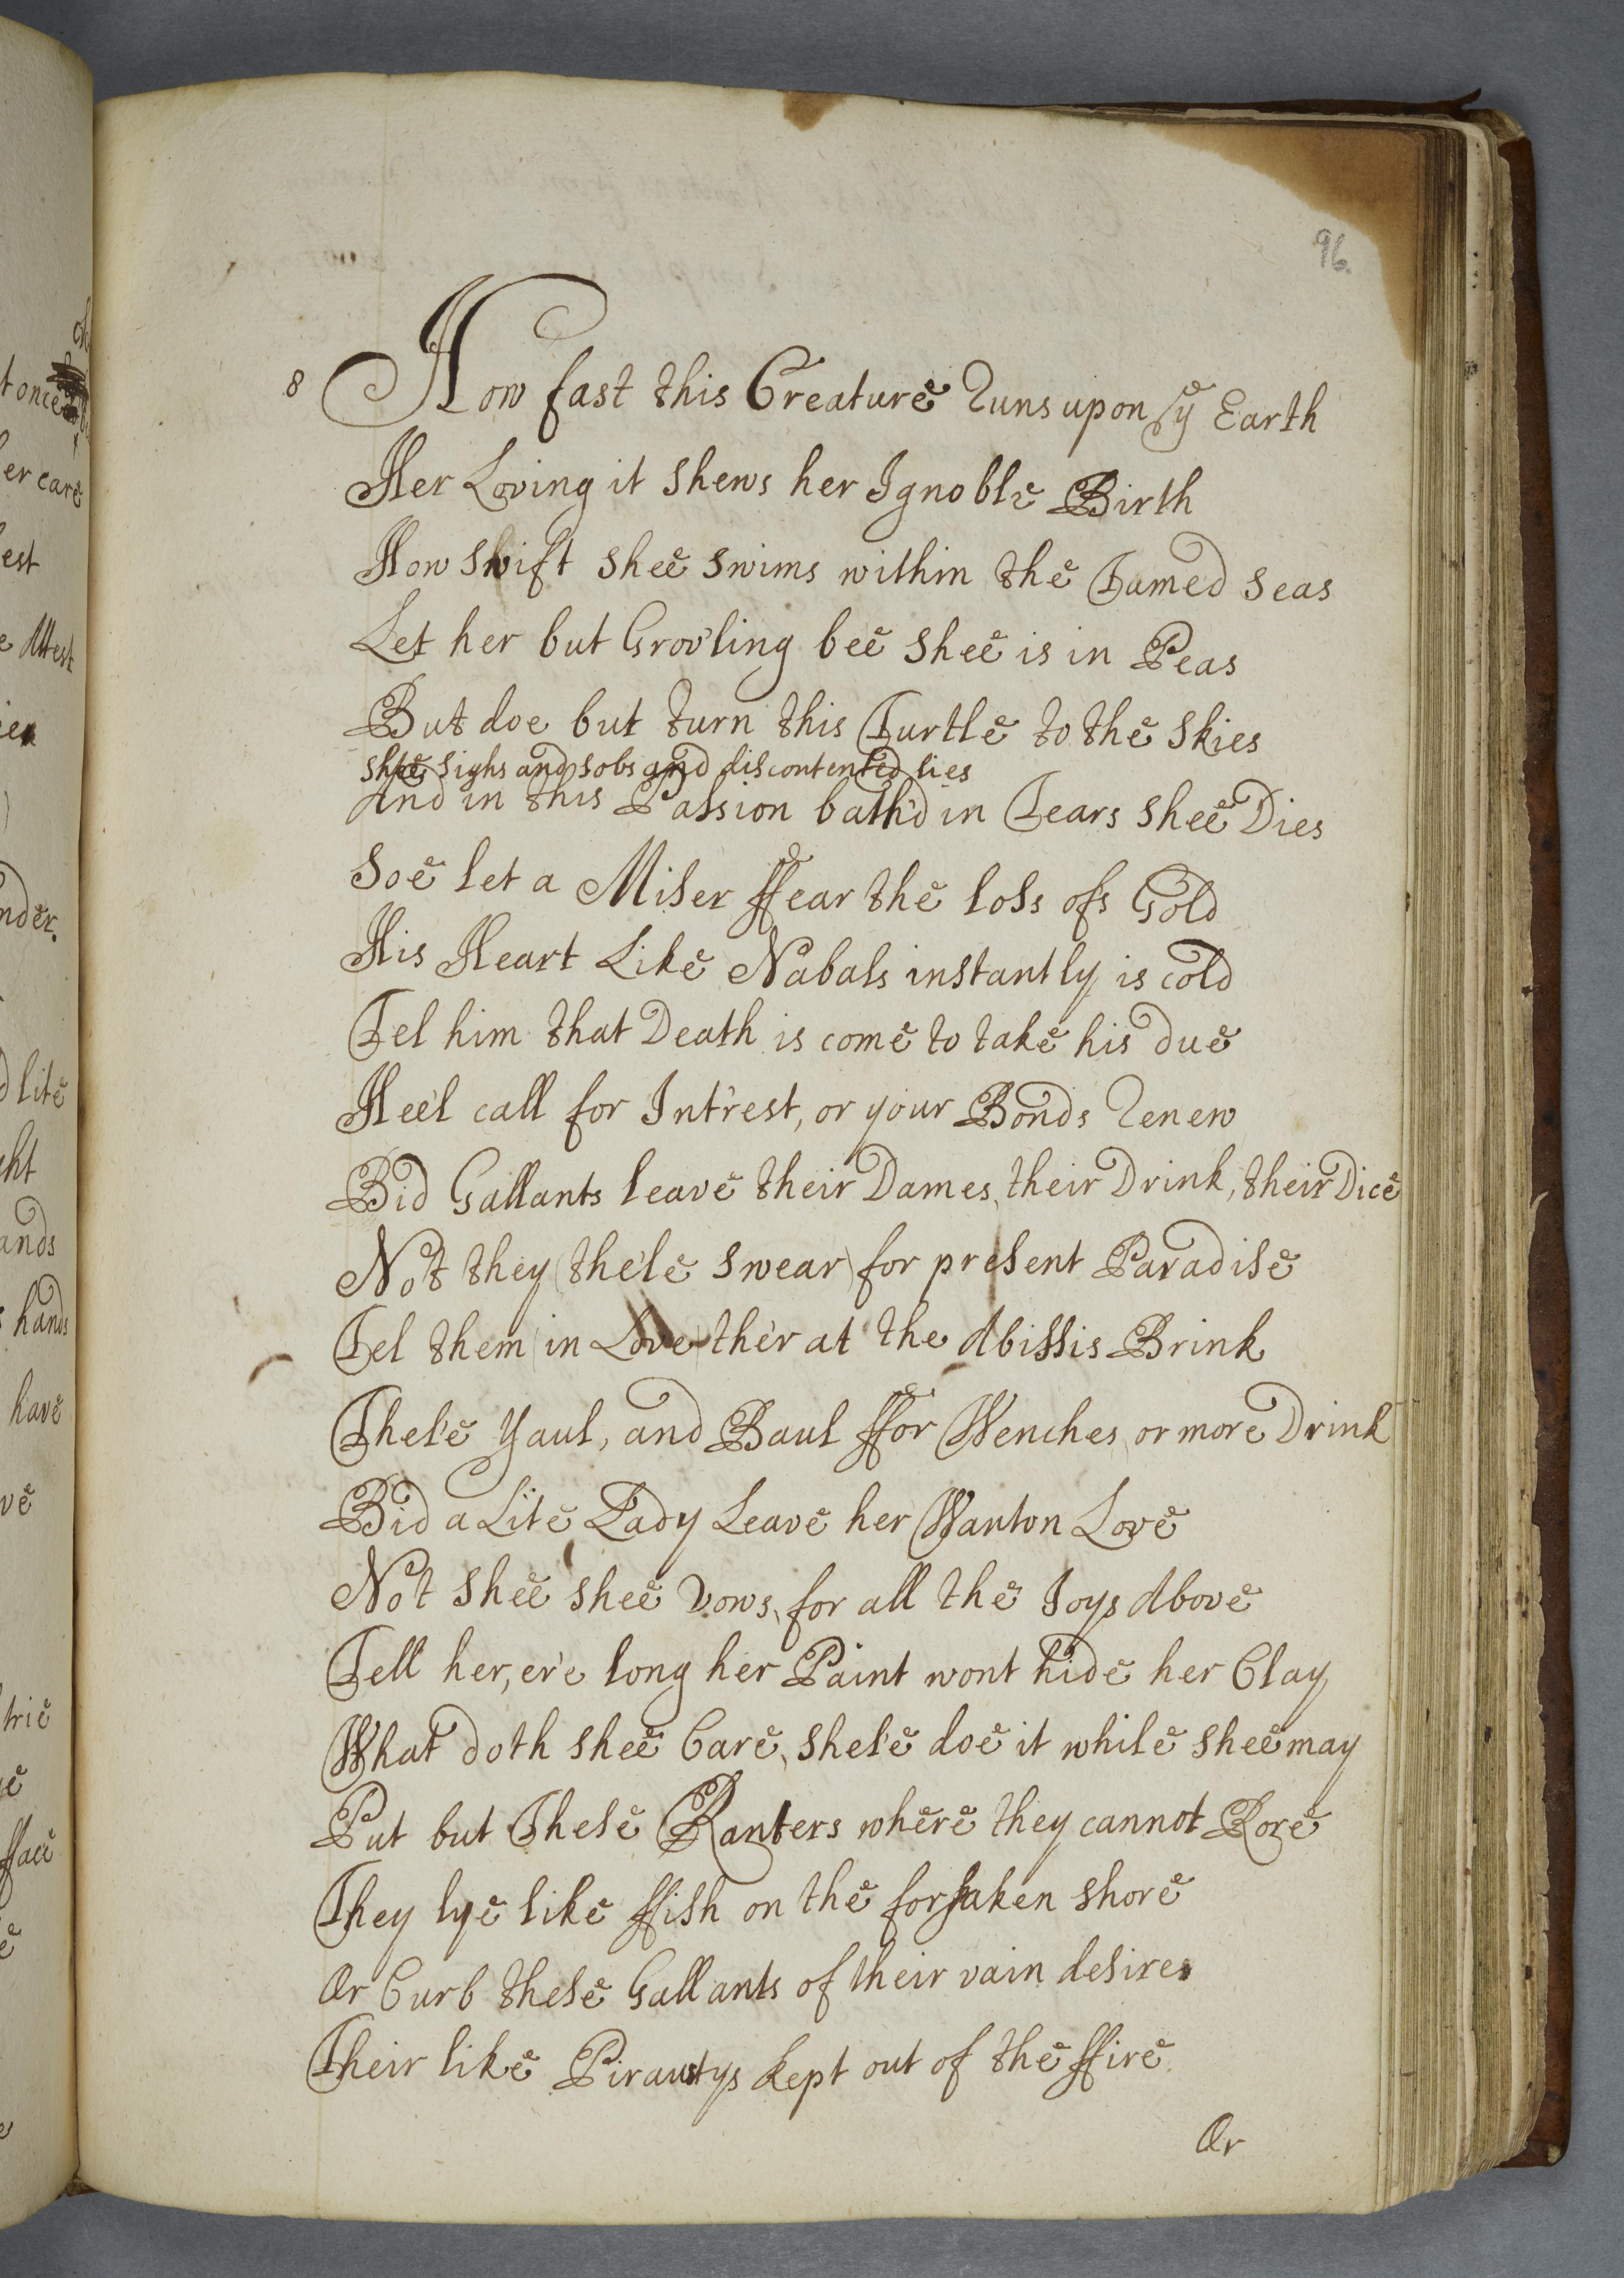 96.
8 How fast this Creature Runs upon ye Earth
Her Loving it shews her Ignoble Birth
How swift shee swims within the Tamed seas
Let her but Grov'ling bee shee is in Peas
But doe but turn this Turtle to the skies
shee sighs and sobs and discontented lies
And in this Passion bath'd in Tears shee Dies
Soe let a Miser ffear the loss of's Gold
His Heart Like Nabals instantly is cold
Tel him that Death is come to take his due
Hee'l call for Int'rest, or your Bonds Renew
Bid Gallants leave their Dames, their Drink, their Dice
Not they (the'le swear) for present Paradise
Tel them (in Love) the'r at the Abissis Brink
The'le Yaul, and Baul ffor Wenches, or more Drink
Bid a Lite Lady Leave her Wanton Love
Not shee shee vows, for all the Joys Above
Tell her, er'e long her Paint wont hide her Clay
What doth shee Care, she'le doe it while shee may
Put but These Ranters where they cannot Rore
They lye like ffish on the forsaken shore
Or Curb these Gallants of their vain desires
Their like Piraustys kept out of the ffire
Or
t once
er care
est
e Attest
nder.
d lite
ght
ands
s hands
have
ve
trie
fface